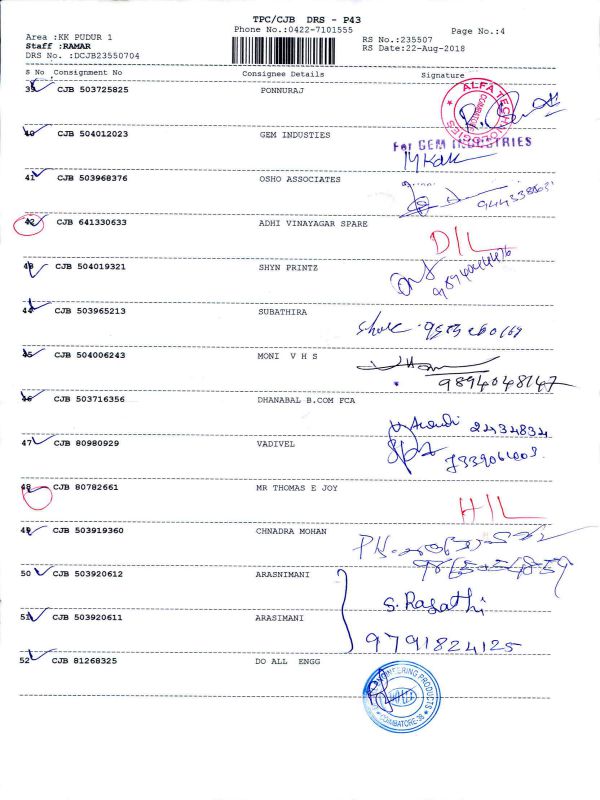 TPC/CJB DRS - P43
Phone No.:0422-7101555
Page No.:4
Area :KK PUDUR 1
RS No.:235507
Staff :RAMAR
RS Date:22-Aug-2018
DRS No. :DCJB23550704
S No Consignment No Consignee Details Signature
39 CJB 503725825 PONNURAJ
ALFA TECHNOLOGIES
40 CJB 504012023 GEM INDUSTIES
For GEM INDUSTRIES
41 CJB 503968376 OSHO ASSOCIATES
42 CJB 641330633 ADHI VINAYAGAR SPARE
D/L
43 CJB 504019321 SHYN PRINTZ
44 CJB 503965213 SUBATHIRA
45 CJB 504006243 MONI V H S
9894048147
46 CJB 503716356 DHANABAL B.COM FCA
2434834
47 CJB 80980929 VADIVEL
48 CJB 80782661 MR THOMAS E JOY
H/L
49 CJB 503919360 CHNADRA MOHAN
50 CJB 503920612 ARASNIMANI
S. Rasathi
51 CJB 503920611 ARASIMANI
9791824125
52 CJB 81268325 DO ALL ENGG
ENGINEERING PRODUCTS
COIMBATORE-38